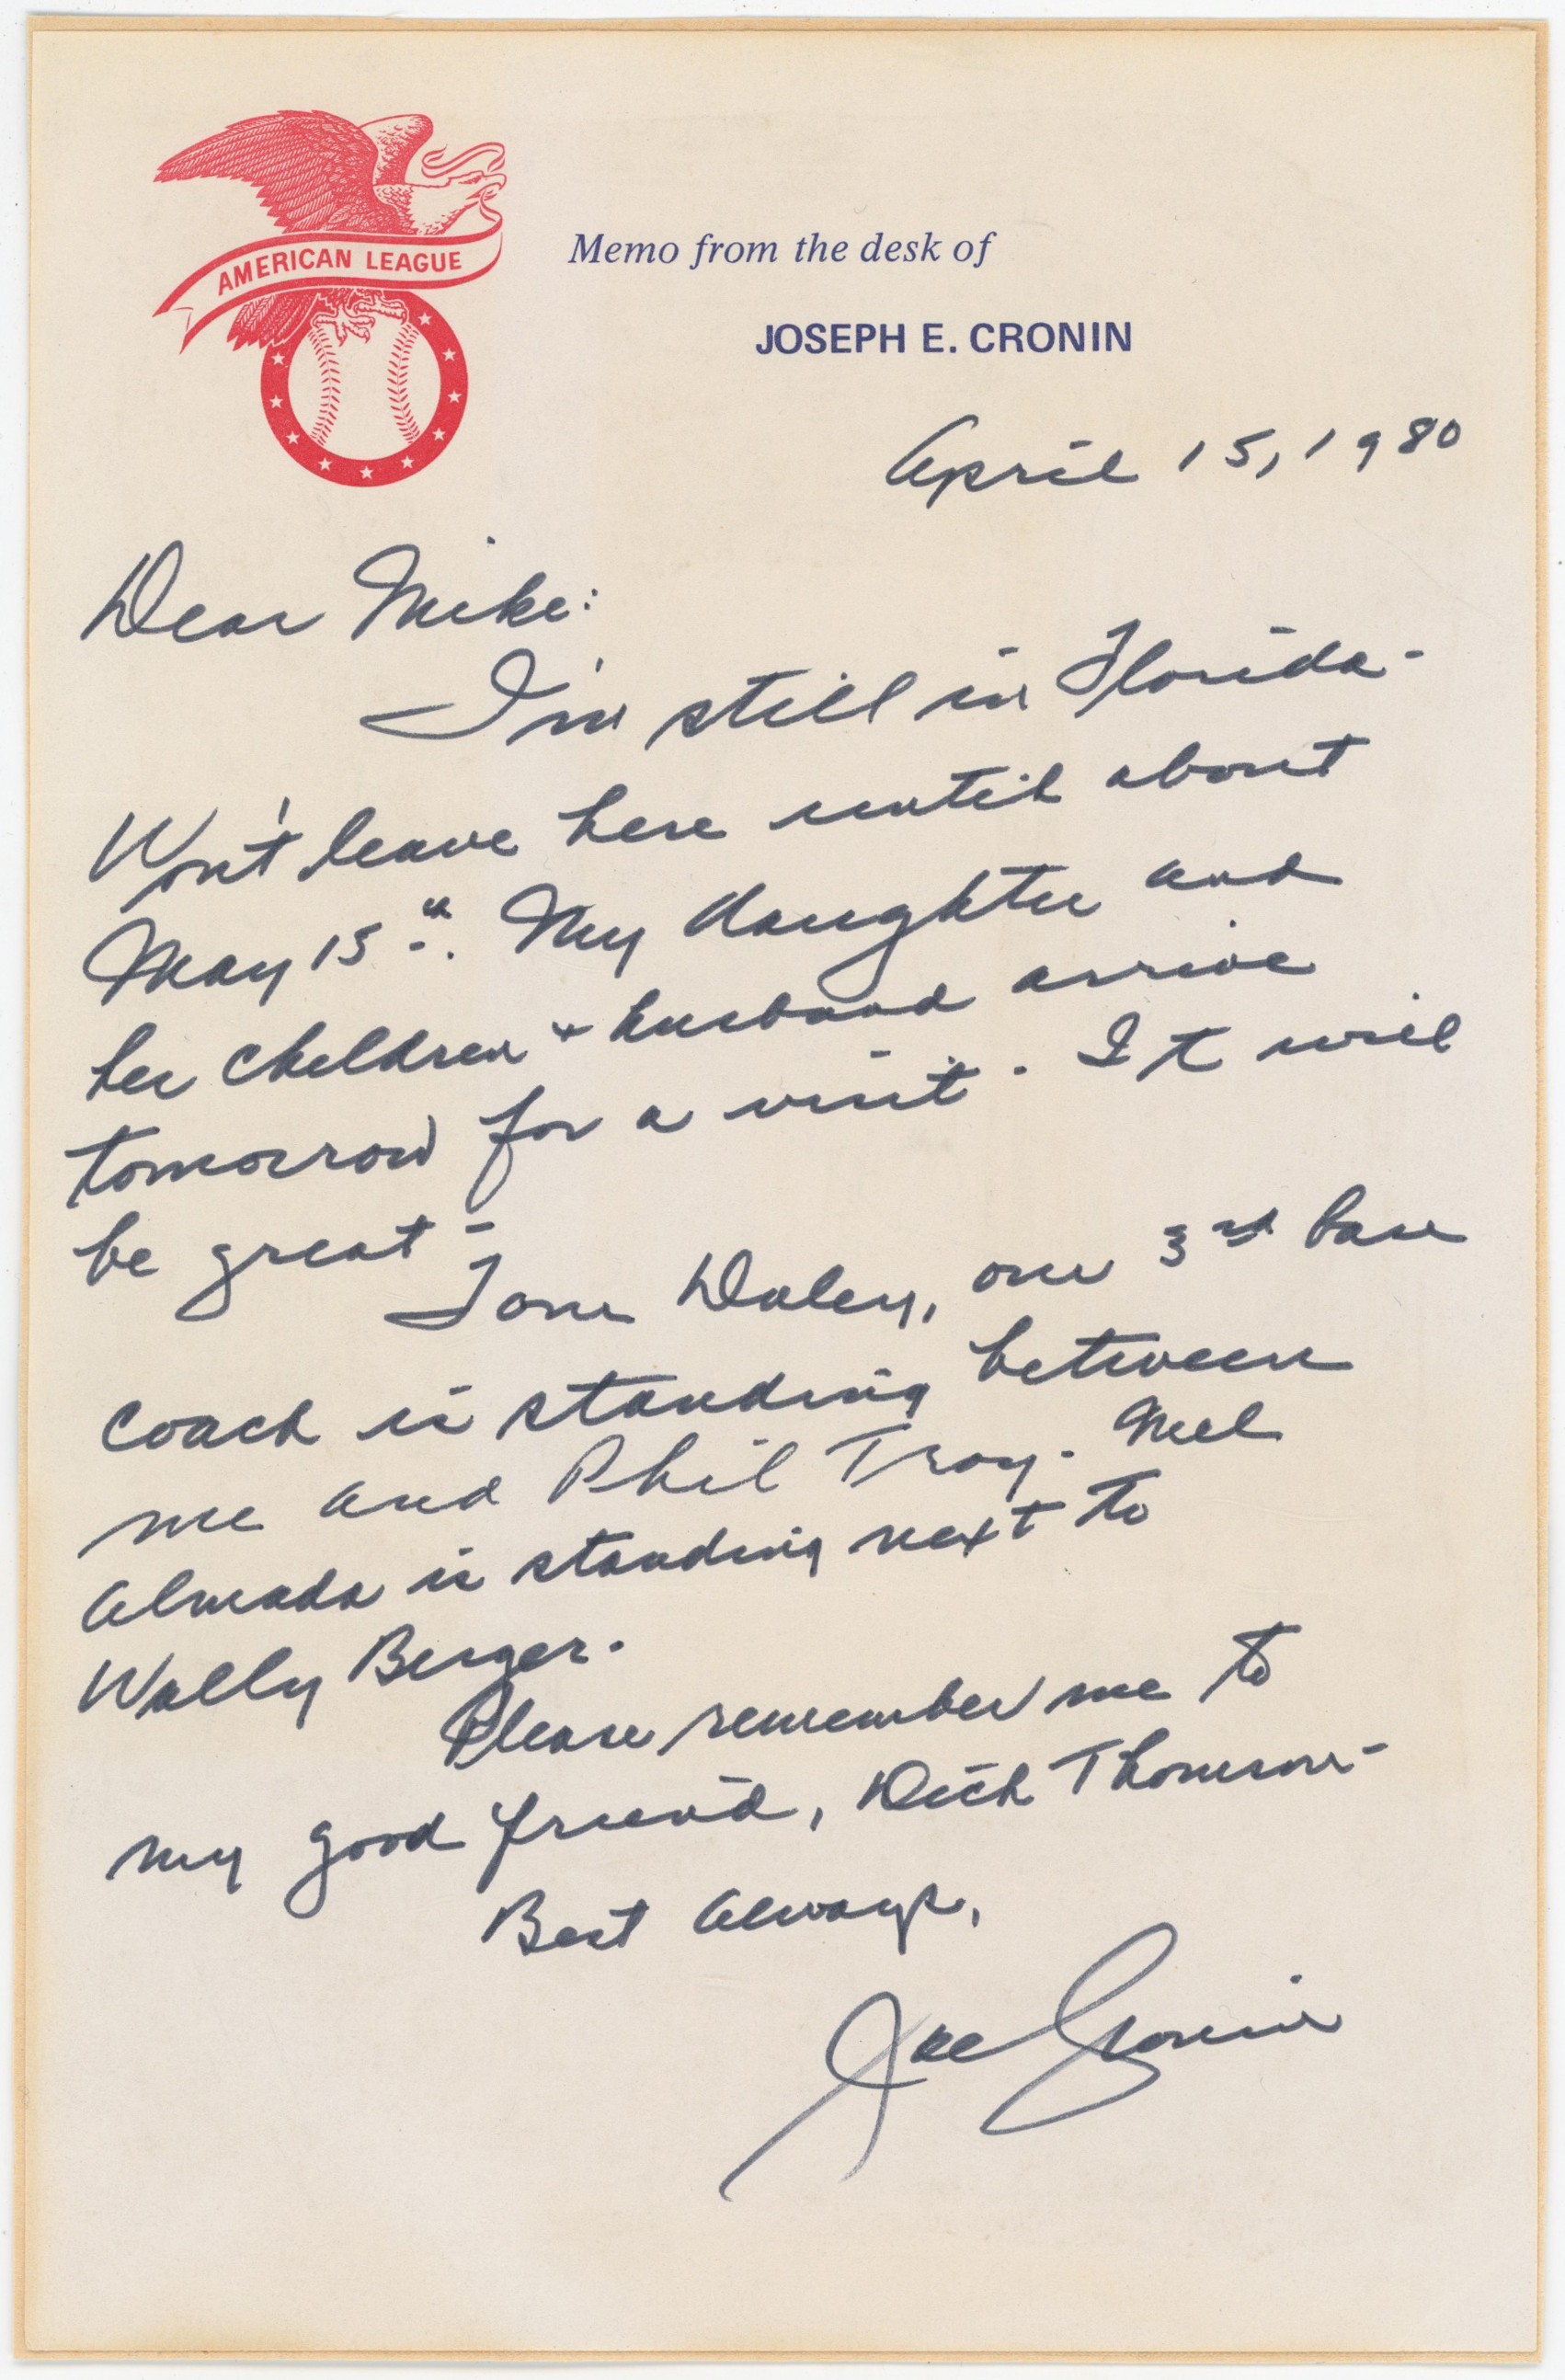 AMERICAN LEAGUE
Memo from the desk of
JOSEPH E. CRONIN
April 15, 1980
Dear Mike:
I'm still in Florida-
Won't leave here until about
May 15th. My daughter and
her children + husband arrive
tomorrow for a visit. It will
be great-
Tom Daley, our 3rd base
coach is standing between
me and Phil Troy. Mel
Almada is standing next to
Wally Berger.
Please remember me to
my good friend, Dick Thomson-
Best Always,
Joe Cronin